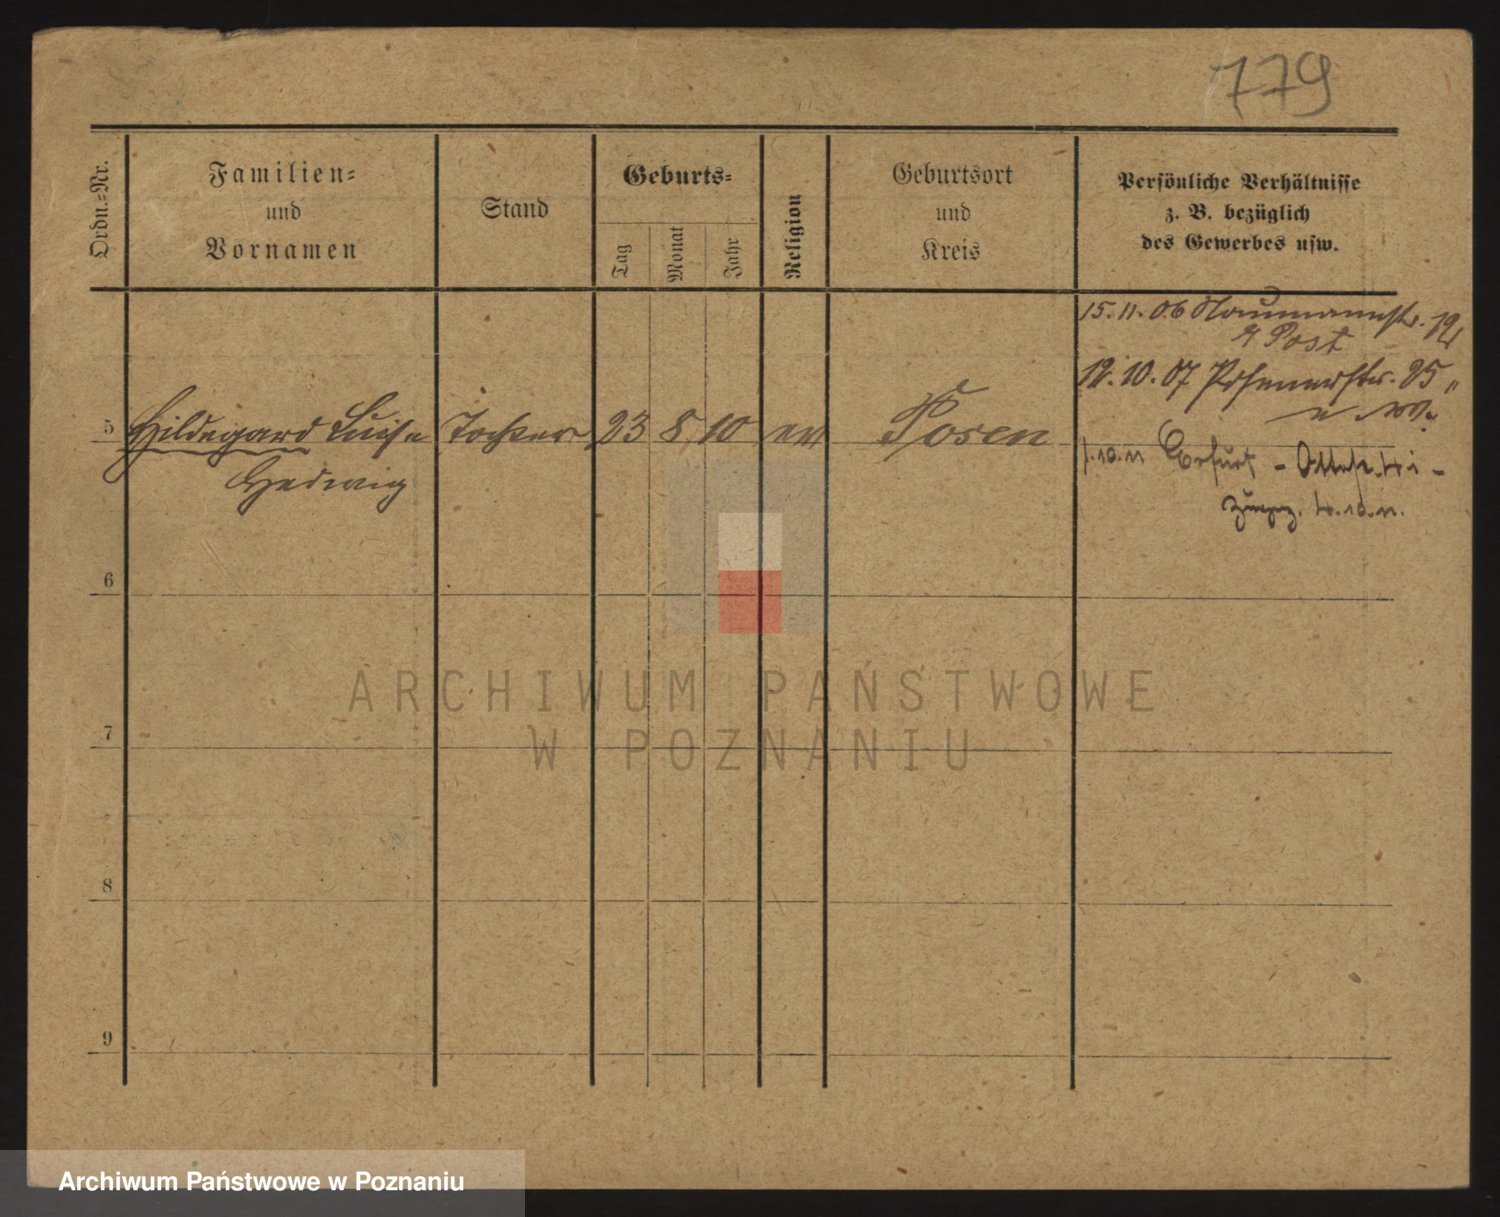 779
Ordn.-Nr.
Familien-
und
Vornamen
Stand
Geburts-
Tag
Monat
Jahr
Religion
Geburtsort
und
Kreis
Persönliche Verhältnisse
z. B. bezüglich
des Gewerbes usw.
15. 11. 06 Naumannstr. 12
Post
12. 10. 07 25
5 Hildegard Luise Tochter 23 8 10 ev Posen
Hedwig
1.10.11 Erfurt -
10.11.
6
7
8
9
ARCHIWUM PAŃSTWOWE
W POZNANIU
Archiwum Państwowe w Poznaniu